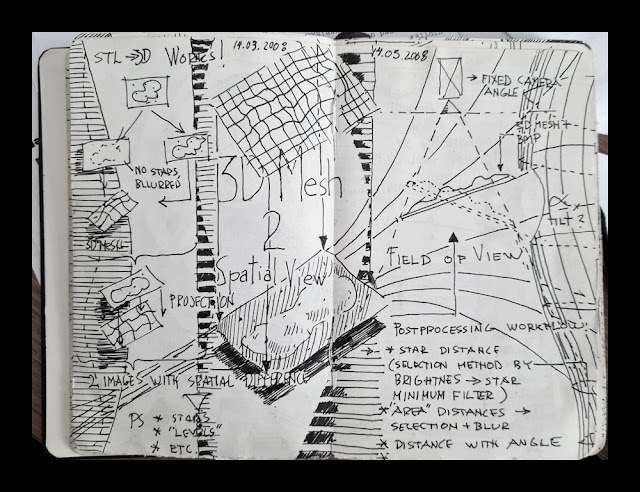 STL → 3D WORKS!
14.03.2008
NO STARS,
BLURRED
3D MESH
PROJECTION
3D Mesh
2
Spatial View
2 IMAGES WITH SPATIAL DIFFERENCE
PS * STARS
* "LEVELS"
* ETC.
14.03.2008
→ FIXED CAMERA
ANGLE
3D MESH +
BMP
TILT 2
FIELD OF VIEW
POSTPROCESSING WORKFLOW:
* STAR DISTANCE
(SELECTION METHOD BY
BRIGHTNES → STAR
MINIMUM FILTER)
* "AREA" DISTANCES →
SELECTION + BLUR
* DISTANCE WITH ANGLE